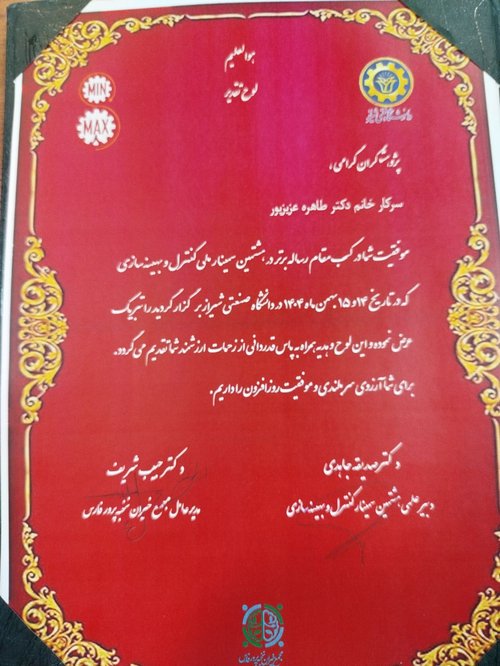 هوالعلیم
لوح تقدیر
MIN
MAX
دانشگاه صنعتی شیراز
پژوهشگران گرامی،
سرکار خانم دکتر طاهره عزیزپور
موفقیت شما در کسب مقام رساله برتر در هشتمین سمینار ملی کنترل و بهینه سازی
که در تاریخ ۱۴ و ۱۵ بهمن ماه ۱۴۰۴ در دانشگاه صنعتی شیراز برگزار گردید را تبریک
عرض نموده و این لوح و هدیه همراه به پاس قدردانی از زحمات ارزشمند شما تقدیم می گردد.
برای شما آرزوی سربلندی و موفقیت روزافزون را داریم.
دکتر صدیقه جاهدی
دبیر علمی هشتمین سمینار کنترل و بهینه سازی
دکتر حبیب شریف
مدیرعامل مجمع خیران نخبه پرور فارس
مجمع خیران نخبه پرور فارس